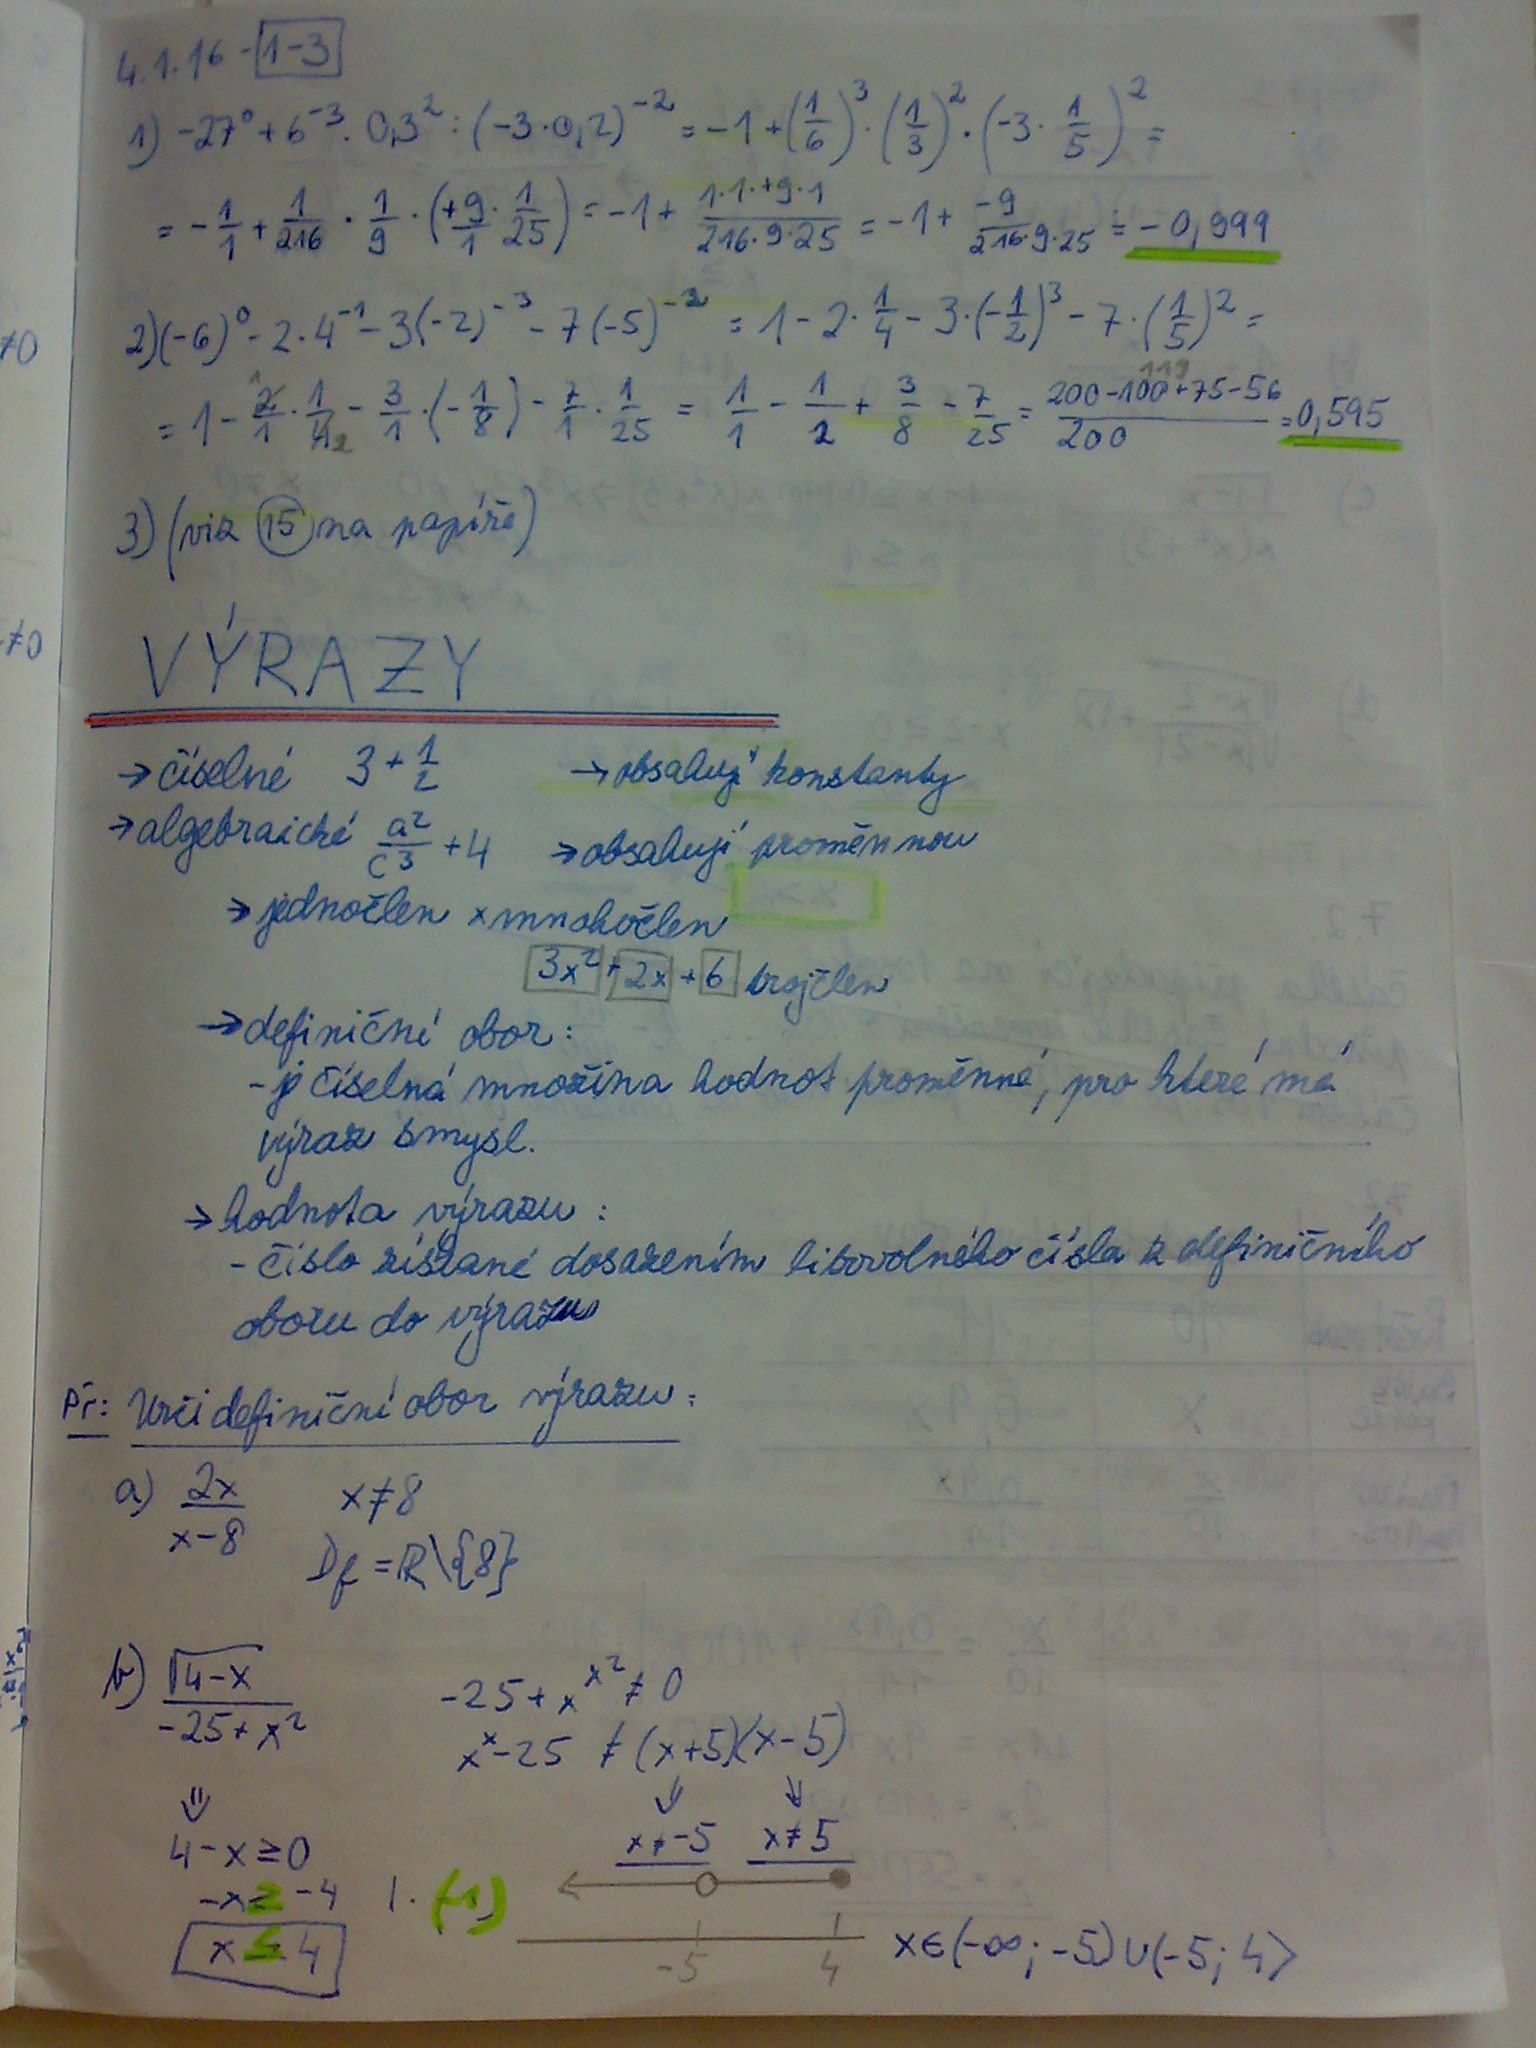 4.1.16 - 1-3
1) -27⁰ + 6⁻³ · 0,3² : (-3·0,2)⁻² = -1 + (1/6)³ · (1/3)² · (-3 · 1/5)² =
= -1/1 + 1/216 · 1/9 · (+9/1 · 1/25) = -1 + 1·1·+9·1/216·9·25 = -1 + -9/216·9·25 = -0,999
2) (-6)⁰ - 2·4⁻¹ - 3(-2)⁻³ - 7(-5)⁻² = 1 - 2·1/4 - 3·(-1/2)³ - 7·(1/5)² =
= 1 - 2/1 · 1/4 - 3/1 · (-1/8) - 7/1 · 1/25 = 1/1 - 1/2 + 3/8 - 7/25 = 200-100+75-56/200 = 0,595
119
3) (viz 15 na papíře)
VÝRAZY
→ číselné 3 + 1/2 → obsahují konstanty
→ algebraické a²/c³ + 4 → obsahují proměnnou
→ jednočlen × mnohočlen
3x² + 2x + 6 trojčlen
→ definiční obor:
- je číselná množina hodnot proměnné, pro které má
výraz smysl.
→ hodnota výrazu :
- číslo získané dosazením libovolného čísla z definičního
oboru do výrazu
Př: Urči definiční obor výrazu:
a) 2x/x-8 x≠8
Df = R\{8}
b) √4-x/-25+x² -25+x x² ≠ 0
xˣ-25 ≠ (x+5)(x-5)
⇓ ↓ ↓
4-x ≥ 0 x≠-5 x≠5
-x ≥ -4 |·(-1)
x ≤ 4 -5 4 x∈(-∞; -5)∪(-5; 4⟩
≠0
≠0